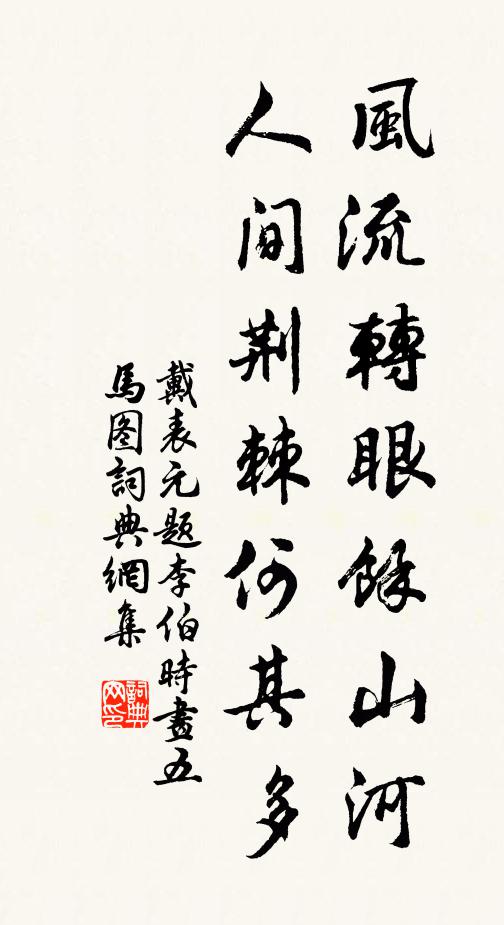 風流轉眼餘山河
人间荆棘何其多
戴表元题李伯時畫五
馬图詞典網集
詞典
网印